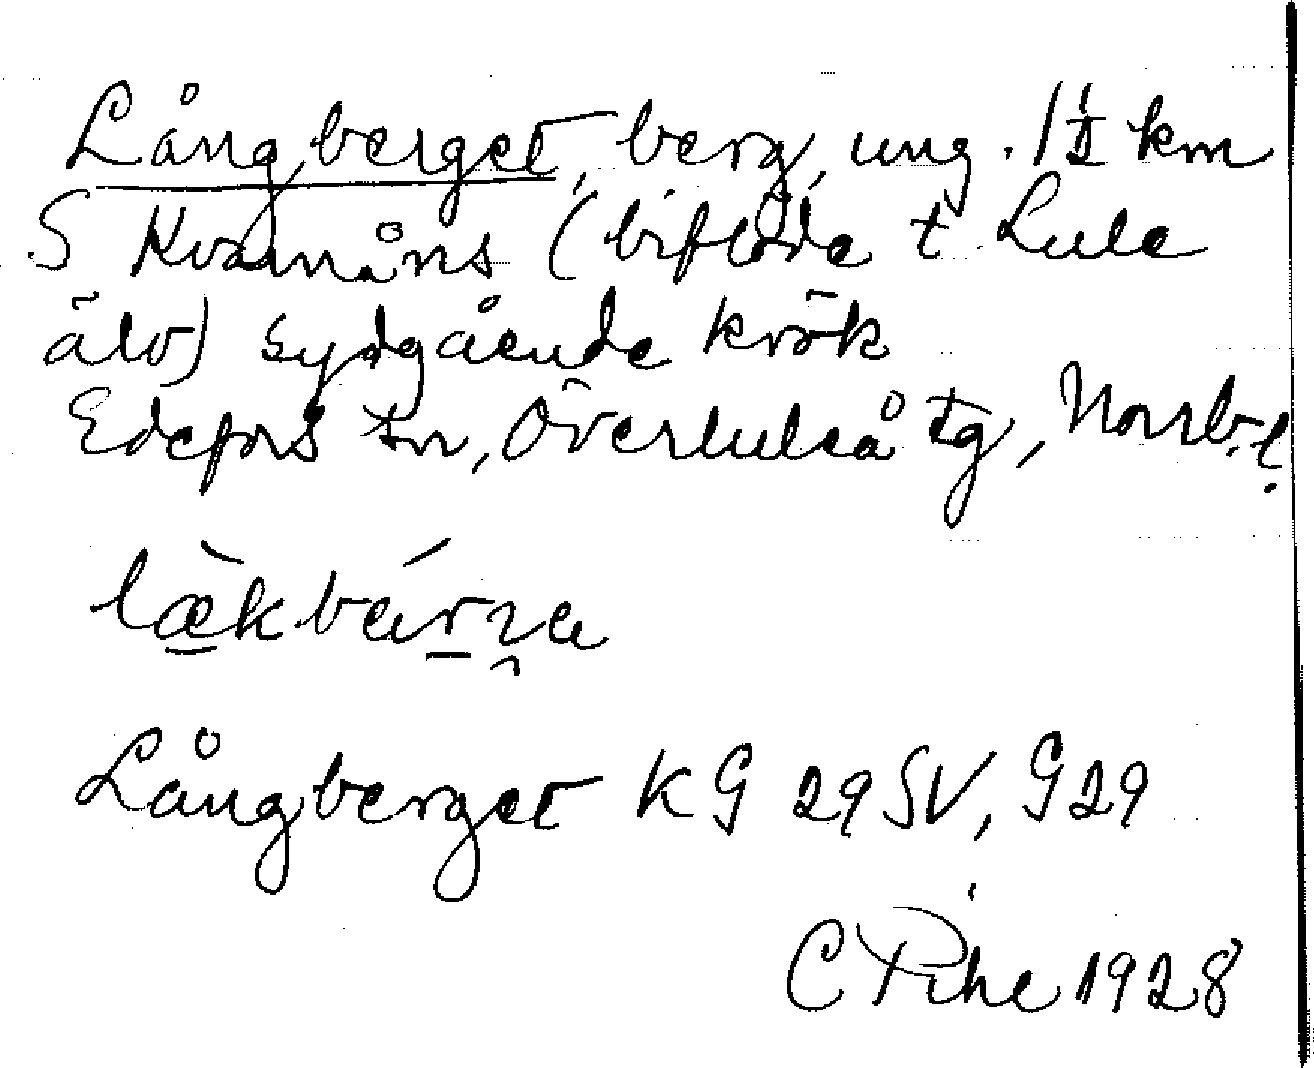 Långberget, berg, ung. 1½ km
S Kvarnåns (biflöde t. Lule
älv) sydgående krök
Edefors sn, Överluleå tg, Norrb. l.
lækbárja
Långberget KG 29 SV, G29
C Pihe 1928